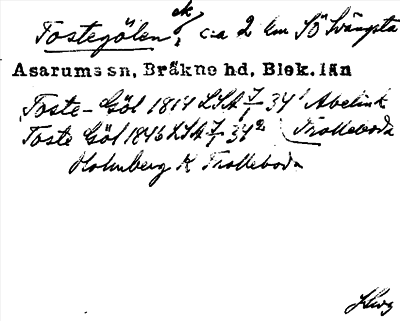 Tostegölen, ek c:a 2 km SÖ Svängsta
Asarums sn, Bräkne hd, Blek. län
Toste-Göl 1814 LSA 7/1 34¹ Abelink
Toste Göl 1846 LSA 7/1 34² Trolleboda
Holmberg K Trolleboda